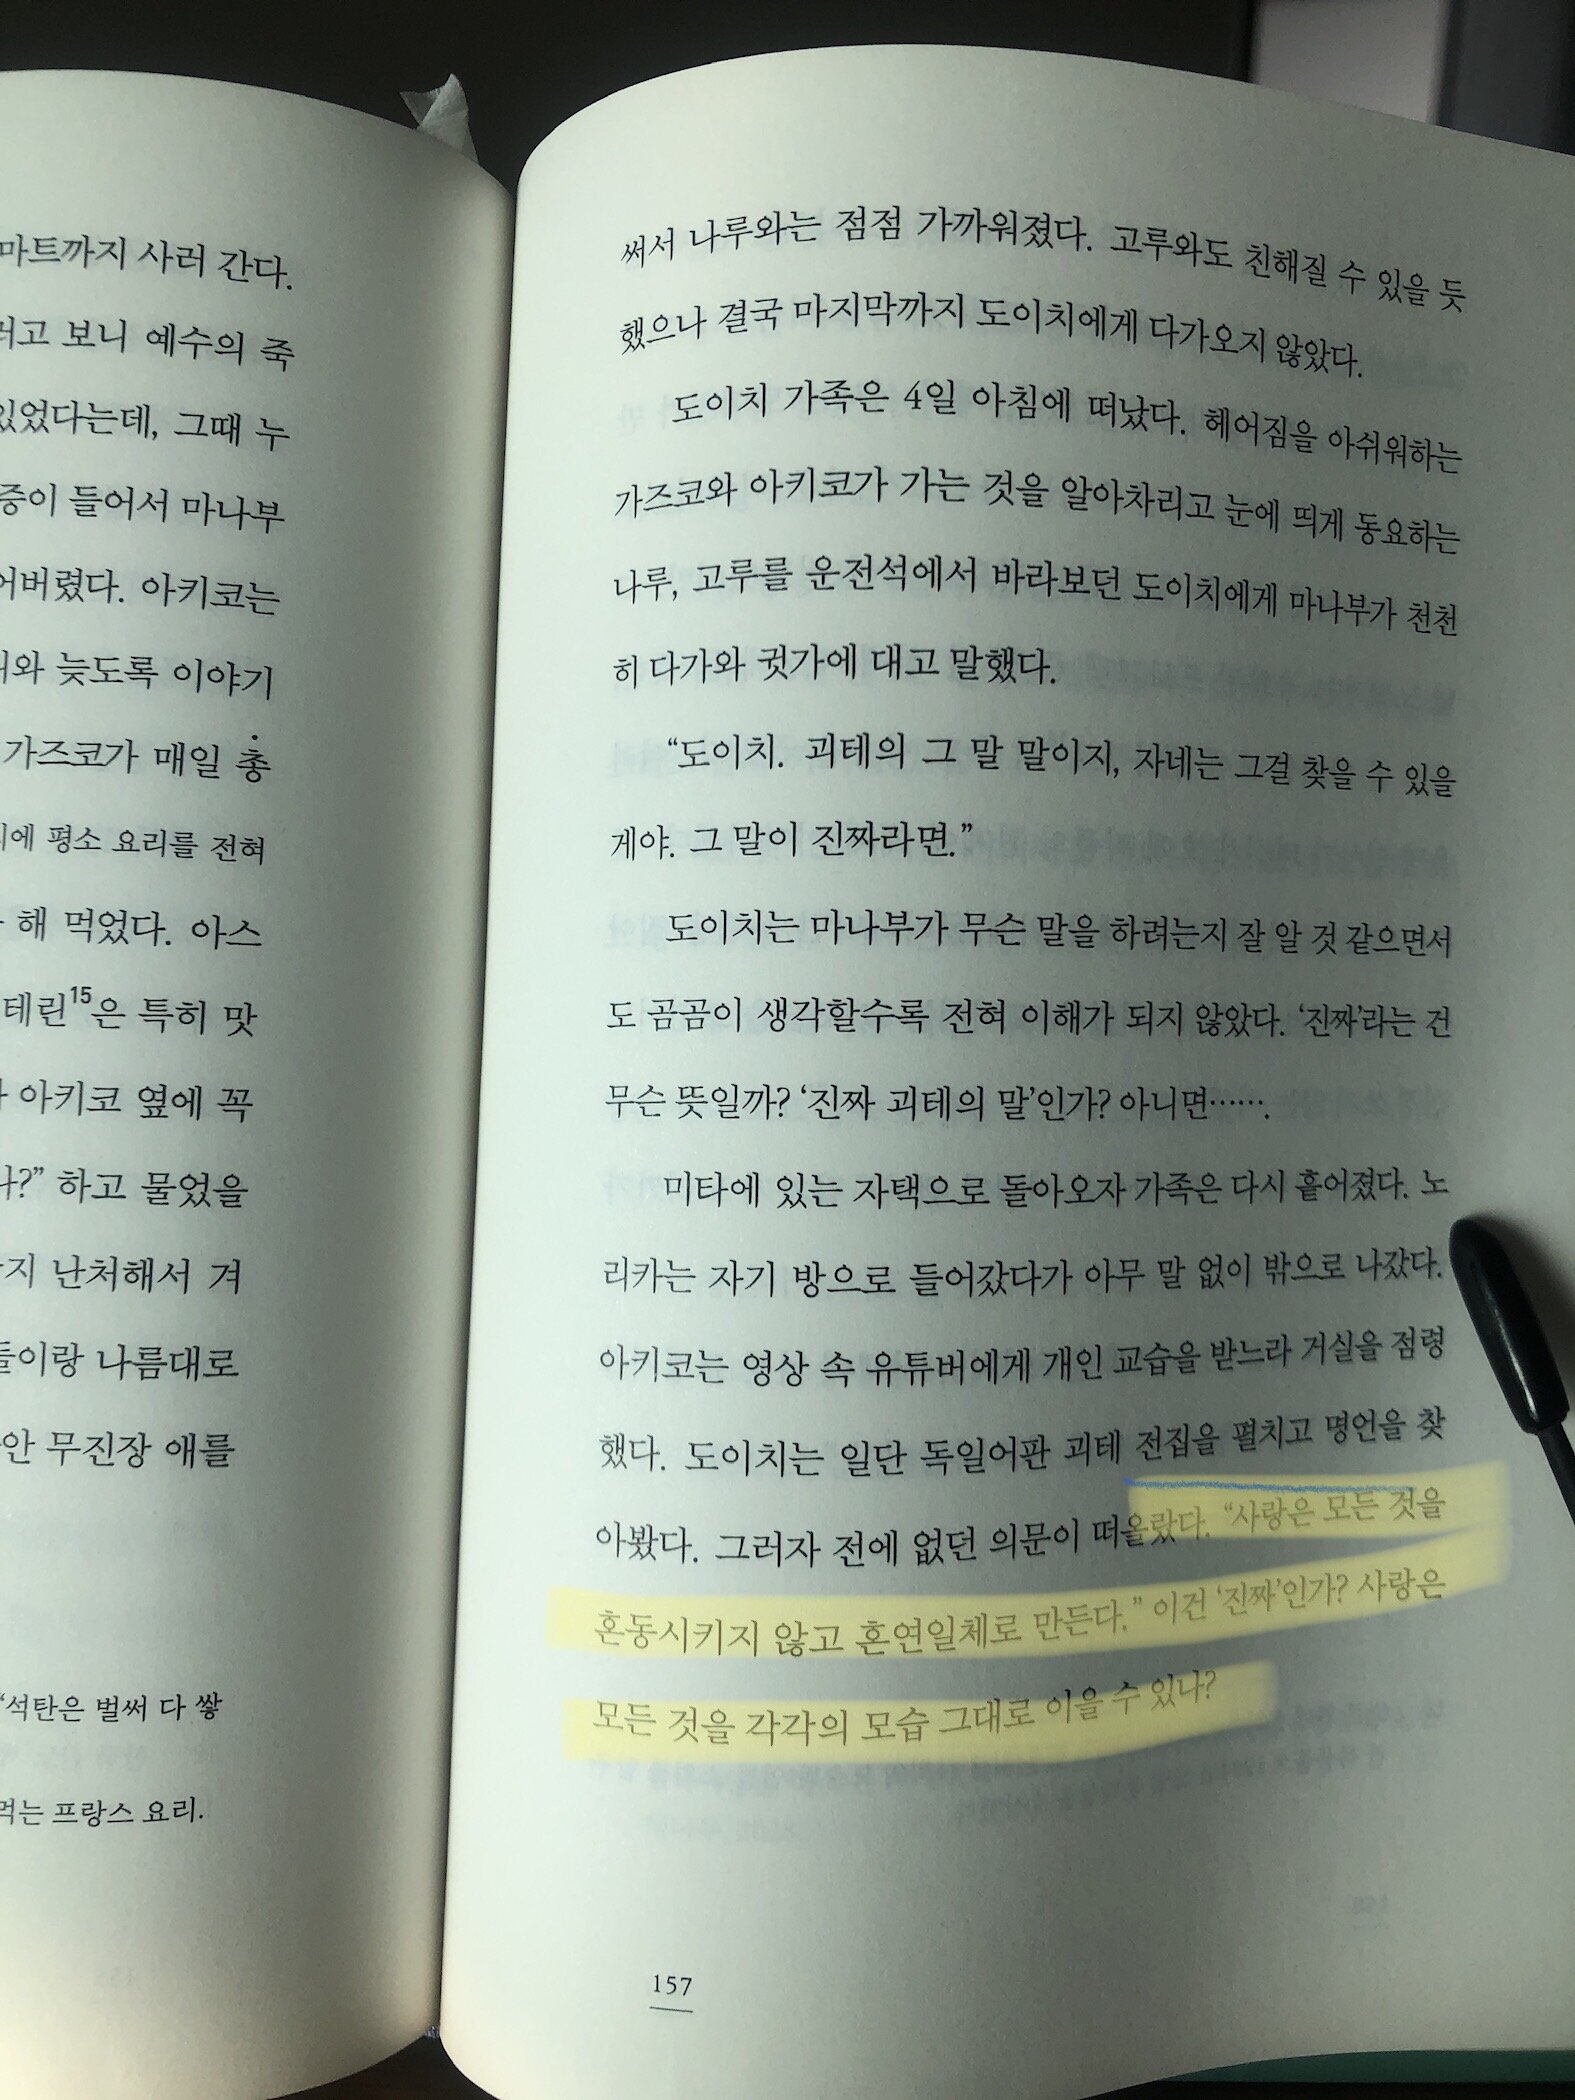 마트까지 사러 간다.
고 보니 예수의 죽
있었다는데, 그때 누
증이 들어서 마나부
어버렸다. 아키코는
와 늦도록 이야기
가즈코가 매일 총
에 평소 요리를 전혀
해 먹었다. 아스
테린15은 특히 맛
아키코 옆에 꼭
나?” 하고 물었을
지 난처해서 겨
들이랑 나름대로
안 무진장 애를
“석탄은 벌써 다 쌓
먹는 프랑스 요리.
써서 나루와는 점점 가까워졌다. 고루와도 친해질 수 있을 듯
했으나 결국 마지막까지 도이치에게 다가오지 않았다.
도이치 가족은 4일 아침에 떠났다. 헤어짐을 아쉬워하는
가즈코와 아키코가 가는 것을 알아차리고 눈에 띄게 동요하는
나루, 고루를 운전석에서 바라보던 도이치에게 마나부가 천천
히 다가와 귓가에 대고 말했다.
“도이치. 괴테의 그 말 말이지, 자네는 그걸 찾을 수 있을
게야. 그 말이 진짜라면.”
도이치는 마나부가 무슨 말을 하려는지 잘 알 것 같으면서
도 곰곰이 생각할수록 전혀 이해가 되지 않았다. ‘진짜’라는 건
무슨 뜻일까? ‘진짜 괴테의 말’인가? 아니면…….
미타에 있는 자택으로 돌아오자 가족은 다시 흩어졌다. 노
리카는 자기 방으로 들어갔다가 아무 말 없이 밖으로 나갔다.
아키코는 영상 속 유튜버에게 개인 교습을 받느라 거실을 점령
했다. 도이치는 일단 독일어판 괴테 전집을 펼치고 명언을 찾
아봤다. 그러자 전에 없던 의문이 떠올랐다. “사랑은 모든 것을
혼동시키지 않고 혼연일체로 만든다.” 이건 ‘진짜’인가? 사랑은
모든 것을 각각의 모습 그대로 이을 수 있나?
157